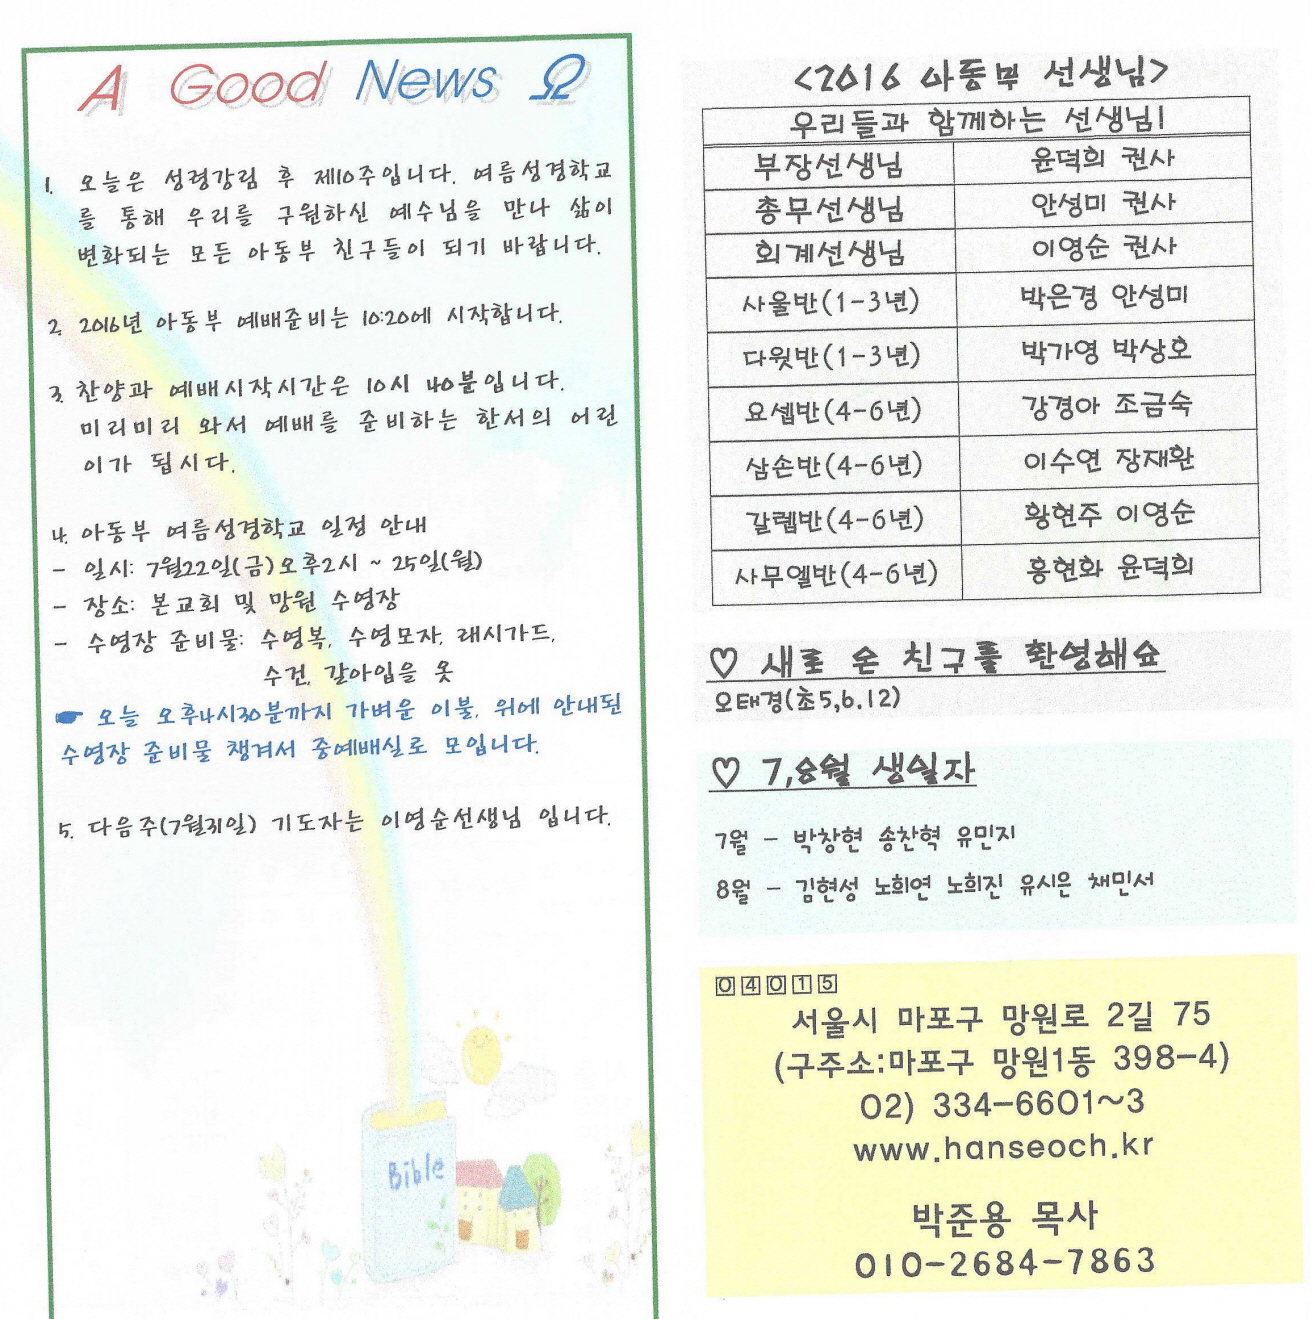 A Good News Ω
1. 오늘은 성령강림 후 제10주입니다. 여름성경학교
를 통해 우리를 구원하신 예수님을 만나 삶이
변화되는 모든 아동부 친구들이 되기 바랍니다.
2. 2016년 아동부 예배준비는 10:20에 시작합니다.
3. 찬양과 예배시작시간은 10시 40분입니다.
미리미리 와서 예배를 준비하는 한서의 어린
이가 됩시다.
4. 아동부 여름성경학교 일정 안내
- 일시: 7월22일(금)오후2시 ~ 25일(월)
- 장소: 본교회 및 망원 수영장
- 수영장 준비물: 수영복, 수영모자, 래시가드,
수건, 갈아입을 옷
☛ 오늘 오후4시30분까지 가벼운 이불, 위에 안내된
수영장 준비물 챙겨서 중예배실로 모입니다.
5. 다음주(7월31일) 기도자는 이영순선생님 입니다.
Bible
<2016 아동부 선생님>
우리들과 함께하는 선생님!
부장선생님 윤덕희 권사
총무선생님 안성미 권사
회계선생님 이영순 권사
사울반(1-3년) 박은경 안성미
다윗반(1-3년) 박가영 박상호
요셉반(4-6년) 강경아 조금숙
삼손반(4-6년) 이수연 장재환
갈렙반(4-6년) 황현주 이영순
사무엘반(4-6년) 홍현화 윤덕희
♡ 새로 온 친구를 환영해요
오태경(초5,6.12)
♡ 7,8월 생일자
7월 - 박창현 송찬혁 유민지
8월 - 김현성 노희연 노희진 유시은 채민서
04015
서울시 마포구 망원로 2길 75
(구주소:마포구 망원1동 398-4)
02) 334-6601~3
www.hanseoch.kr
박준용 목사
010-2684-7863